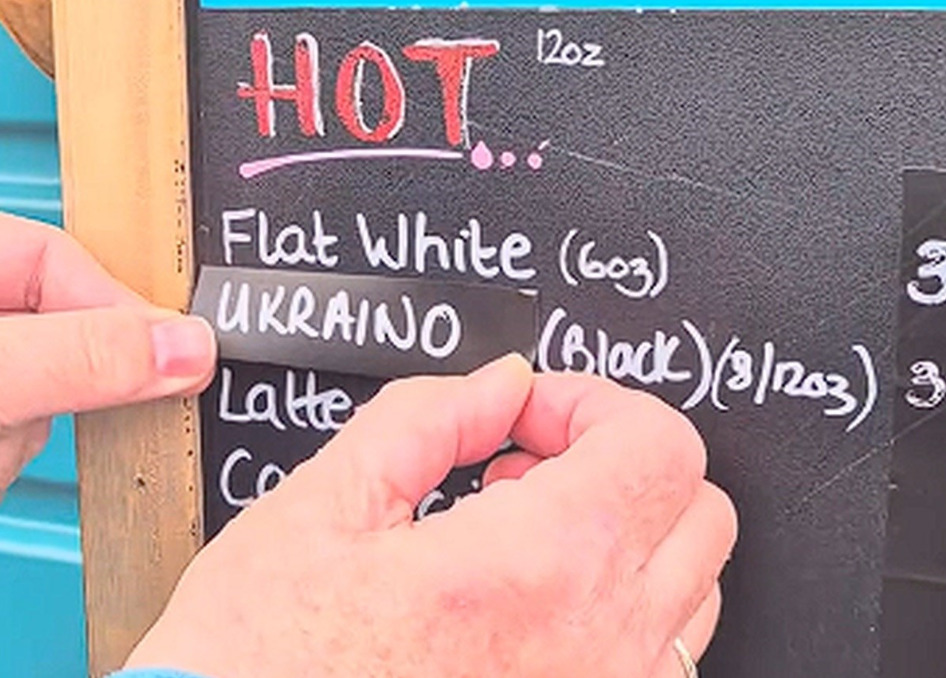 HOT... 12oz
Flat White (6oz)
UKRAINO (Black) (8/12oz)
Latte